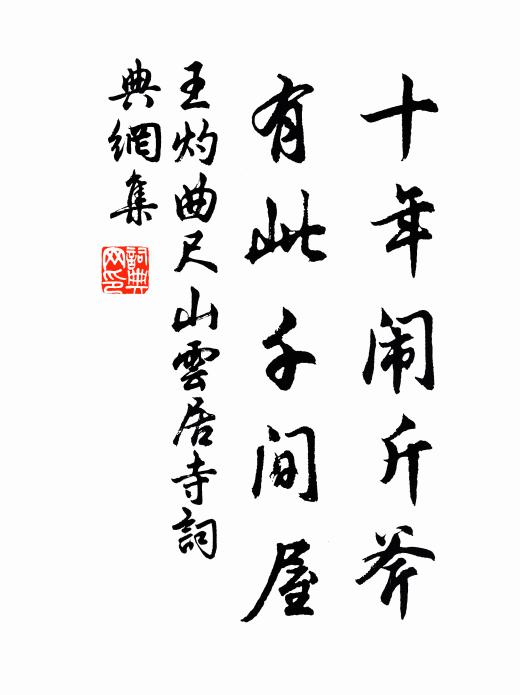 十年闹斤斧
有此千间屋
王灼曲尺山雲居寺詞
典網集
詞典网印